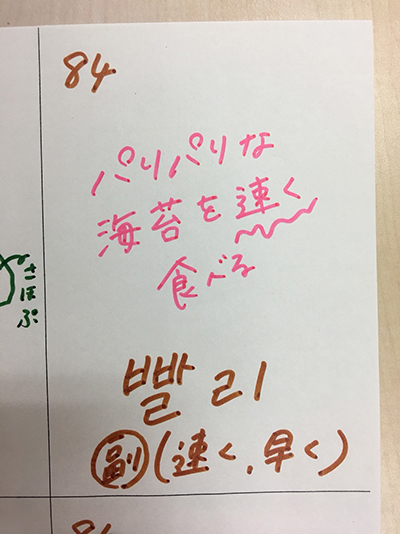 84
パリパリな
海苔を速く
食べる
빨리
副(速く,早く)
さほぷ